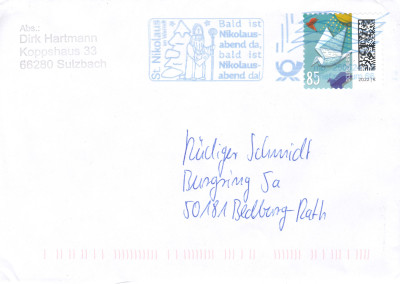 Abs.:
Dirk Hartmann
Koppshaus 33
66280 Sulzbach
St. Nikolaus
Bald ist
Nikolaus-
abend da,
bald ist
Nikolaus-
abend da!
85
Rüdiger Schmidt
Burgring 5a
50181 Bedburg-Rath